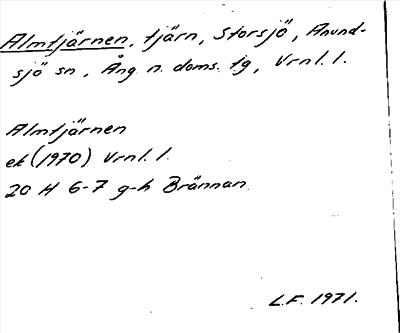 Almtjärnen, tjärn, Storsjö, Anund-
sjö sn, Ång. n. doms. tg, Vrnl. l.
Almtjärnen
ek (1970) Vrnl. l.
20 H 6-7 g-h Brännan
L.F. 1971.